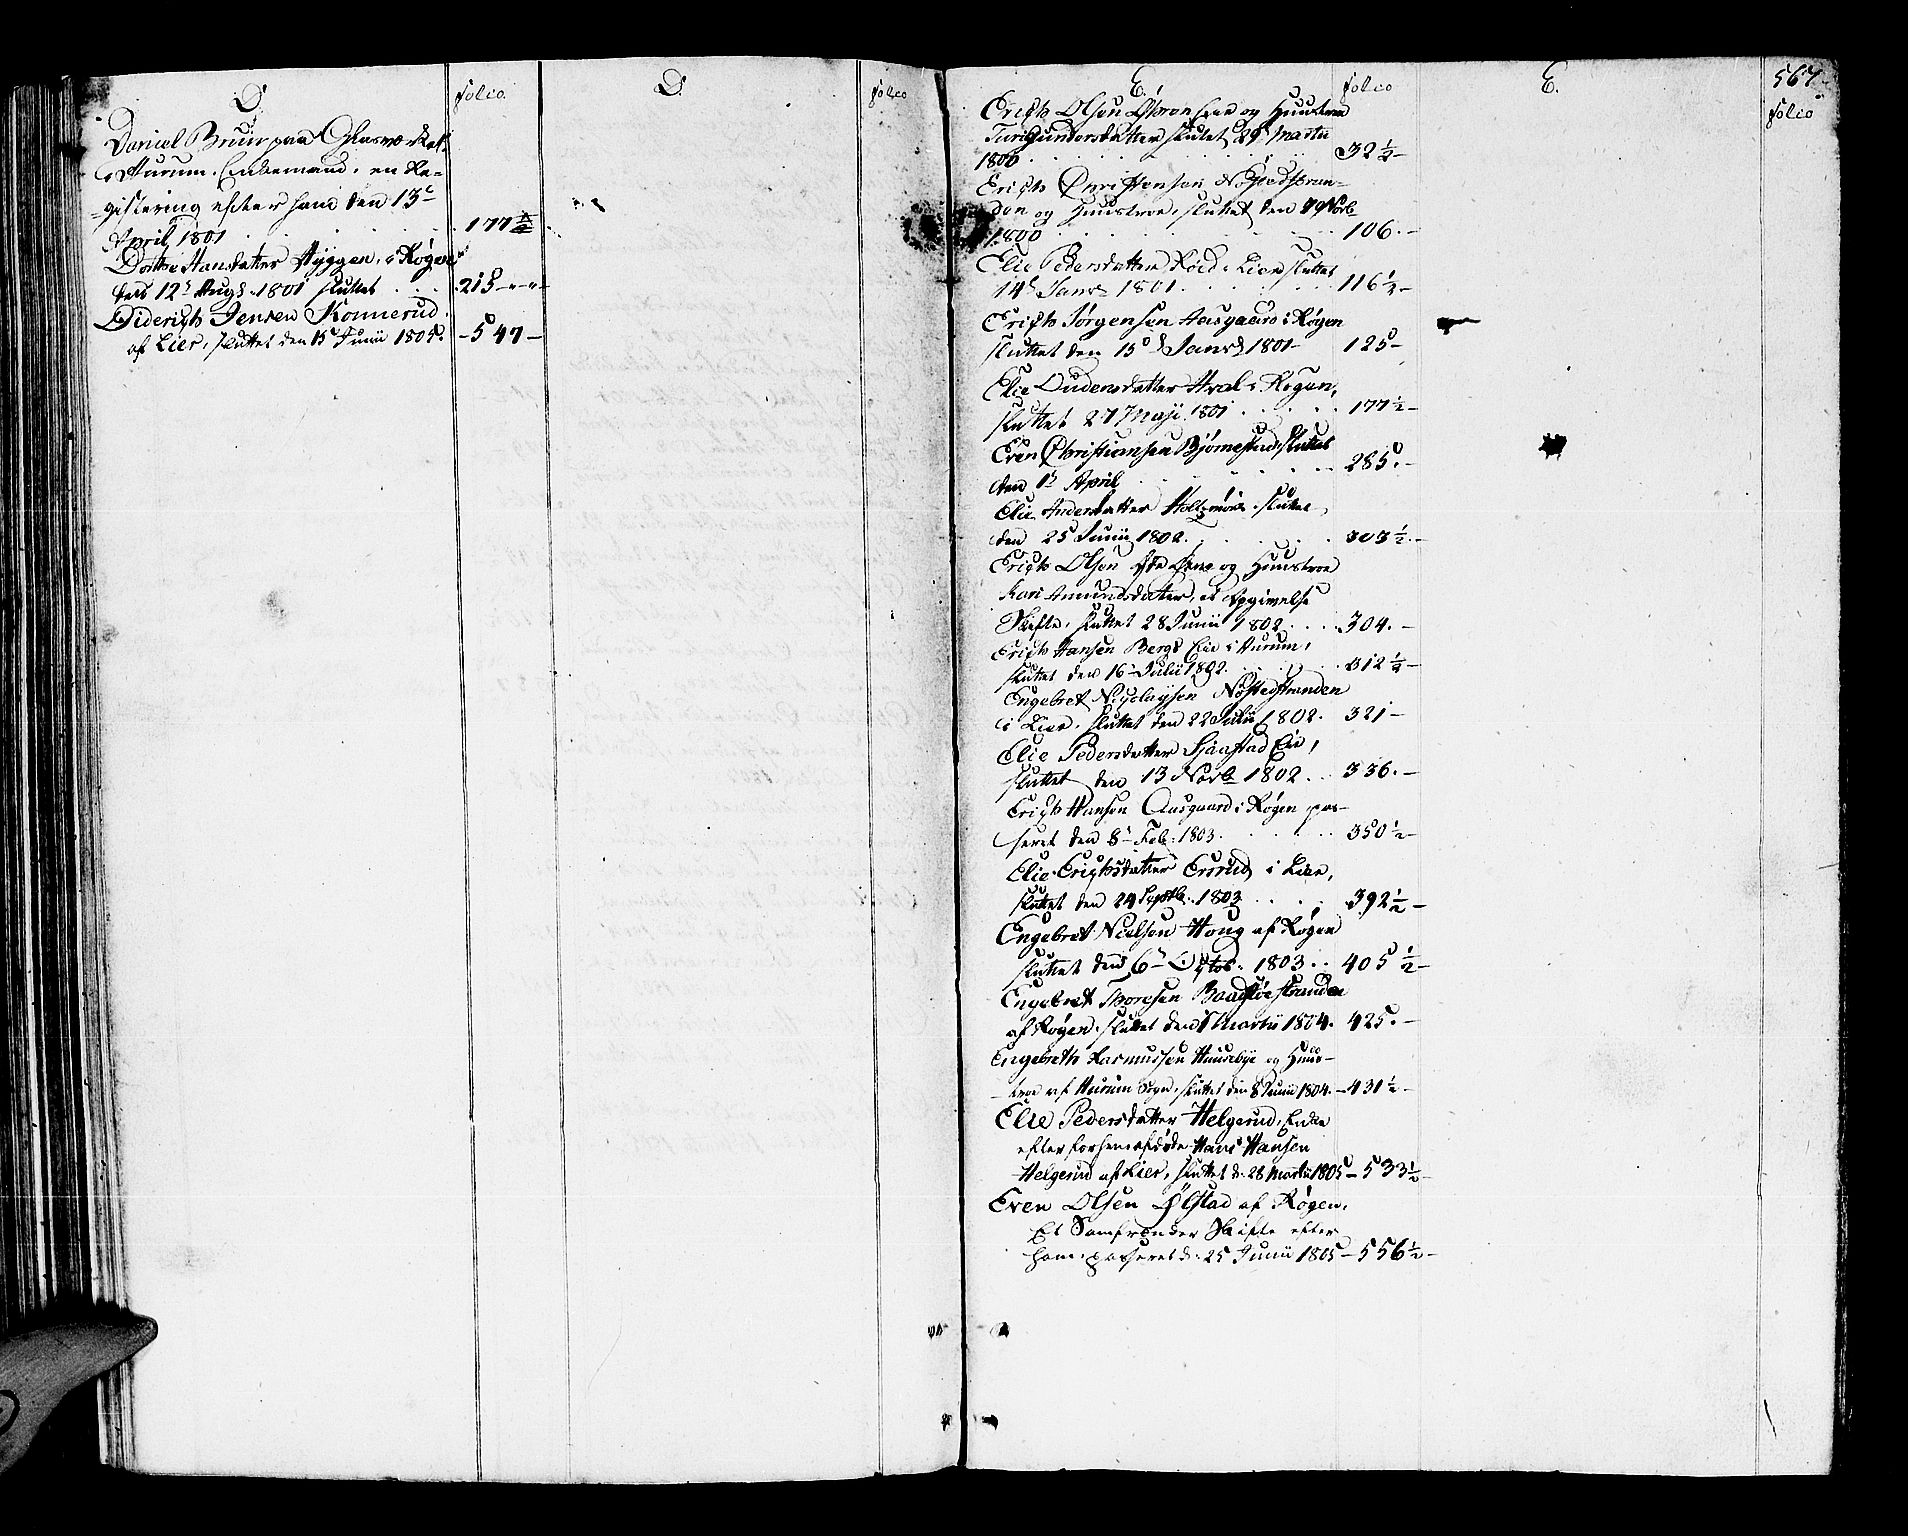 D.
folio
D.
folio
Daniel Bruun paa Glasværket
i Hurum, Enkemand, en Re-
-gistering efter ham den 13de
April 1801 . . . . . 177 ½
Dorthe Hansdatter Hyggen, i Røgen
den 12te Augs. 1801 sluttet . . . 215
Diderich Jensen Konnerud
af Lier, sluttet den 15 Junii 1805. - 547 -
567.
E.
folio
E.
folio
Erich Olsen og Hustroe
Turi Gundersdatter sluttet 29 Martii
1800 . . . . . 32 ½ -
Erich Christensen Nøstedstran-
den og Hustroe, sluttet den Novb.
1800 . . . . . 106. -
Elie Pedersdatter Røed i Lier sluttet
14de Janr. 1801 . . . . . 116 ½ -
Erich Jørgensen Aasgaard i Røgen
sluttet den 15de Janr. 1801 - 125 -
Elie Oudensdatter Hval i Røgen,
sluttet 27 Maji 1801 . . . . . 177 ½ -
Even Christiansen Bjørnestad sluttet
den 1te April . . . . . 285. -
Elie Andersdatter sluttet
den 25 Junii 1802. . . . . 303 ½ -
Erich Olsen og Hustroe
Kari Amundsdatter, et Opgivelse
Skifte, sluttet 28 Junii 1802 . . . . 304. -
Erich Hansen Bergs Eie i Hurum,
sluttet den 16te Julii 1802. . . . . 312 ½ -
Engebret Nicolaysen Nøstedstranden
i Lier, sluttet den 22 Julii 1802. 321 -
Elie Pedersdatter Sjaastad Eie,
sluttet den 13 Novb. 1802 . . 336. -
Erich Hansen Aasgaard i Røgen pas-
seret den 8te Feb: 1803. . . . . 350 ½ -
Elie Erichsdatter Ersrud i Lier,
sluttet den 24 Septb. 1803 . . . . 392 ½ -
Engebret Nielsen Houg af Røgen
sluttet den 6te Octob. 1803 . . 405 ½ -
Engebret Thoresen Baadstøestranden
af Røgen, sluttet den Martii 1804. 425. -
Engebreth Rasmussen Huusebye og Huus-
troe af Hurum Sogn, sluttet den 8 Junii 1804. - 431 ½ -
Elie Pedersdatter Helgerud, Enke
efter forhen afdøde Hans Hansen
Helgerud af Lier, sluttet d. 28 Martii 1805 - 533 ½ -
Even Olsen Ølstad af Røgen,
Et Samfrænder Skifte efter
ham, passeret d. 25 Junii 1805 - 556 ½ -